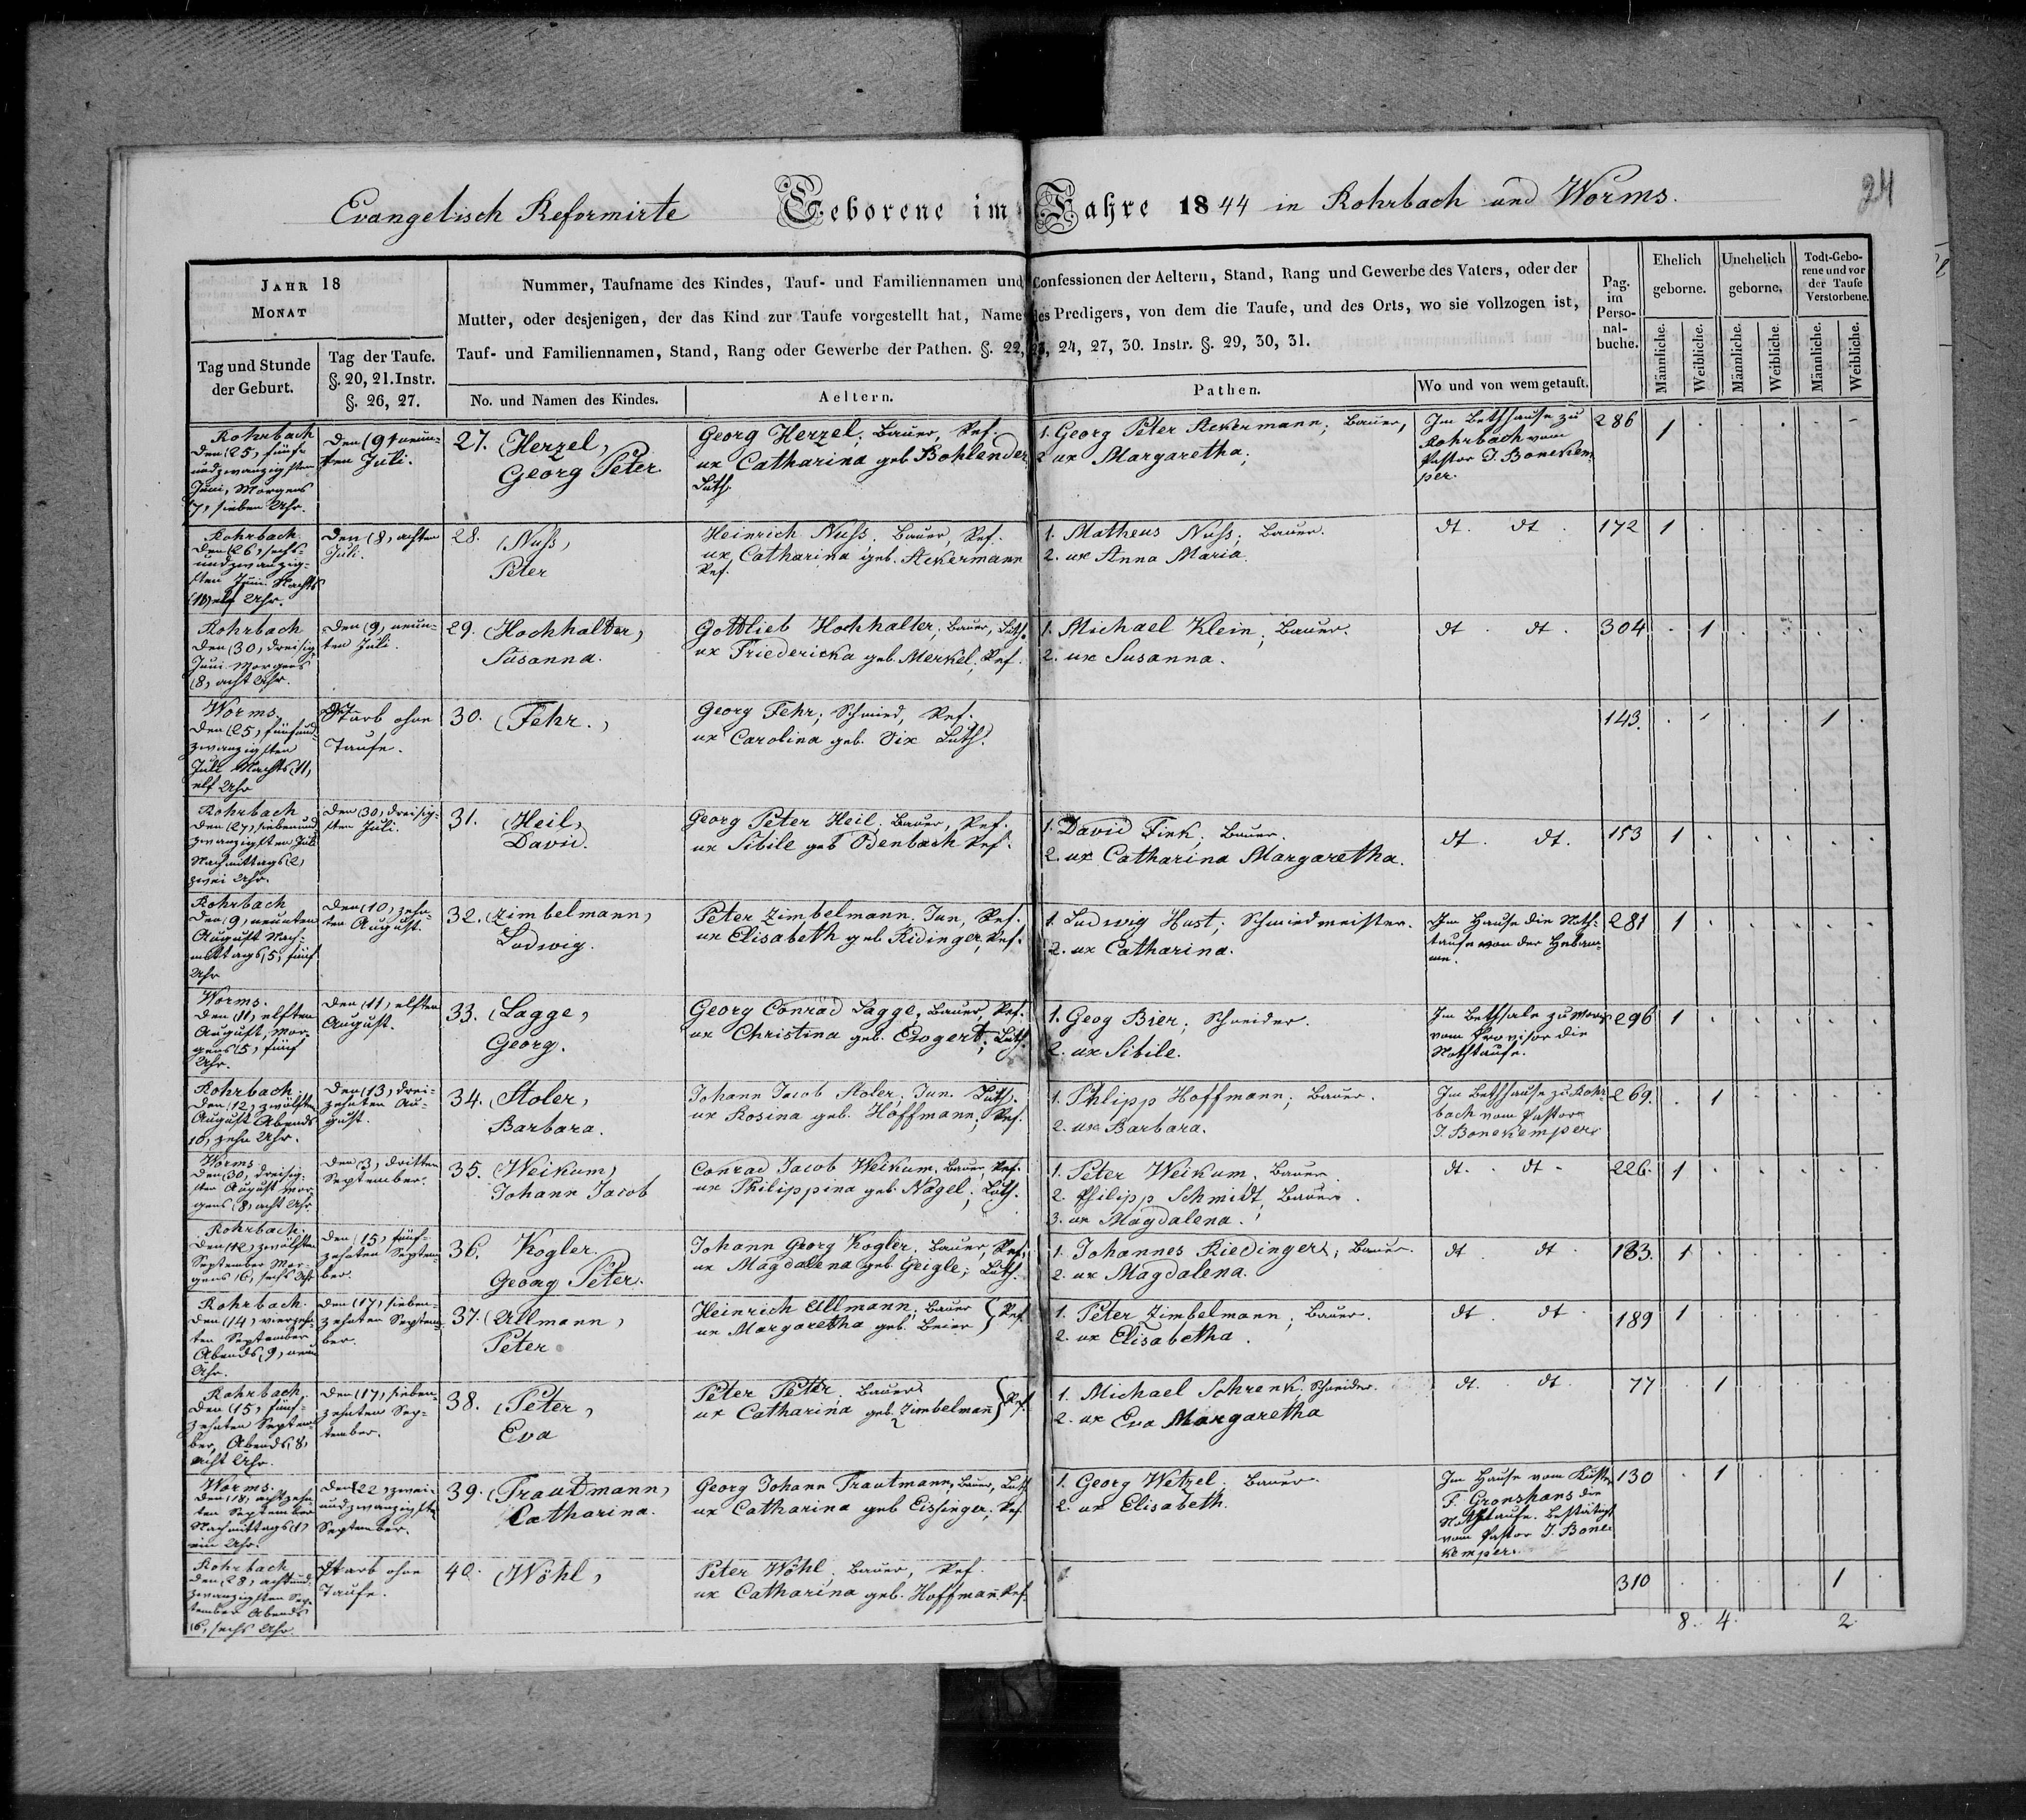 24
Evangelisch Reformirte Geborene im Jahre 1844 in Rohrbach und Worms.
JAHR 18
MONAT
Tag und Stunde
der Geburt.
Tag der Taufe.
§. 20, 21. Instr.
§. 26, 27.
Nummer, Taufname des Kindes, Tauf- und Familiennamen und Confessionen der Aeltern, Stand, Rang und Gewerbe des Vaters, oder der
Mutter, oder desjenigen, der das Kind zur Taufe vorgestellt hat, Name des Predigers, von dem die Taufe, und des Orts, wo sie vollzogen ist,
Tauf- und Familiennamen, Stand, Rang oder Gewerbe der Pathen. §. 22, 23, 24, 27, 30. Instr. §. 29, 30, 31.
No. und Namen des Kindes.
Aeltern.
Pathen.
Wo und von wem getauft.
Pag.
im
Perso-
nal-
buche.
Ehelich
geborne.
Unehelich
geborne.
Todt-Gebo-
rene und vor
der Taufe
Verstorbene.
Männliche.
Weibliche.
Männliche.
Weibliche.
Männliche.
Weibliche.
Rohrbach
den (25, fünf-
undzwanzigsten
Juni, Morgens
7, sieben Uhr.
den (9, neun-
ten Juli.
27. (Herzel,
Georg Peter
Georg Herzel, Bauer, Ref.
ux Catharina geb Bohlender
Luth.
1. Georg Peter Ackermann; Bauer,
2 ux Margaretha;
Im Bethhause zu
Rohrbach vom
Pastor J. Bonekem
per.
286 1
Rohrbach
den (26, sechs-
undzwanzig-
sten Juni. Nachts
(11) elf Uhr.
den (8, achten
Juli.
28. (Nuss,
Peter
Heinrich Nuss. Bauer, Ref.
ux Catharina geb. Ackermann
Ref.
1. Matheus Nuss; Bauer.
2. ux Anna Maria
dt. dt.
172 1
Rohrbach
den (30, dreisig
Juni Morgens
(8, acht Uhr.
den (9, neun-
ten Juli.
29. (Hochhalter,
Susanna.
Gottlieb Hochhalter, Bauer, Luth.
ux Friedericka geb. Merkel, Ref.
1. Michael Klein; Bauer.
2. ux Susanna.
dt. dt.
304 1
Worms
den (25, fünfund-
zwanzigsten
Juli Nachts (11,
elf Uhr
Starb ohne
Taufe.
30. (Fehr.,
Georg Fehr; Schmied, Ref.
ux Carolina geb. Dix Luth.
143. 1
Rohrbach
den (27, siebenund
zwanzigsten Juli
Nachmittags (2,
zwei Uhr.
den (30, dreisig-
sten Juli.
31. (Heil,
David.
Georg Peter Heil, Bauer, Ref.
ux Sibile geb Odenbach Ref.
1. David Fink, Bauer.
2. ux Catharina Margaretha.
dt. dt.
153 1
Rohrbach
den (9, neunten
August Nach-
mittags (5, fünf
Uhr
den (10, zehn-
ten August.
32. (Zimbelmann,
Ludwig.
Peter Zimbelmann. Jun, Ref.
ux Elisabeth geb Ridinger, Ref.
1. Ludwig Hust; Schmiedmeister.
2. ux Catharina.
Im Hause die Noth-
taufe von der Hebam-
me.
281 1
Worms.
den (11, elften
August, Mor-
gens (5, fünf
Uhr.
den (11, elften
August.
33. (Lagge,
Georg.
Georg Conrad Lagge, Bauer, Ref.
ux Christina geb. Luth.
1. Geog Bier; Schneider.
2. ux Sibile.
Im Bethsale zu Worms
vom Provisor die
Nothtaufe.
296 1
Rohrbach
den (12, zwölften
August Abends
10, zehn Uhr.
den (13, drei-
zehnten Au-
gust.
34. (Stoler,
Barbara.
Johann Jacob Stoler, Jun. Luth.
ux Rosina geb. Hoffmann, Ref.
1. Phlipp Hoffmann; Bauer.
2. ux Barbara.
Im Bethhause zu Rohr-
bach vom Pastor
J. Bonekemper.
269. 1
Worms
den (30, dreisig-
sten August Mor-
gens (8, acht Uhr
den (3, dritten
September.
35. (Weikum,
Johann Jacob
Conrad Jacob Weikum, Bauer Ref.
ux Philippina geb. Nagel; Luth.
1. Peter Weikum, Bauer
2. Philipp Schmidt, Bauer.
3. ux Magdalena.
dt. dt.
226. 1
Rohrbach.
den (12, zwölften
September Mor-
gens (6, sechs Uhr
den (15, fünf-
zehnten Septem-
ber.
36. Kogler.
Georg Peter.
Johann Georg Kogler, Bauer, Ref.
ux Magdalena geb. Geigle; Luth.
1. Johannes Riedinger; Bauer.
2. ux Magdalena.
dt dt.
183. 1
Rohrbach.
den (14) vierzehn-
ten September
Abends (9, neun
Uhr.
den (17, sieben-
zehnten Septem-
ber.
37. (Ullmann,
Peter
Heinrich Ullmann; Bauer
ux Margaretha geb. Beier } Ref
1. Peter Zimbelmann; Bauer.
2. ux Elisabetha.
dt. dt.
189 1
Rohrbach.
den (15, fünf-
zehnten Septem-
ber, Abends (8,
acht Uhr.
den (17, sieben-
zehnten Sep-
tember.
38. (Peter,
Eva
Peter Peter. Bauer
ux Catharina geb. Zimbelmann } Ref.
1. Michael Schrenk, Schneider.
2. ux Eva Margaretha
dt. dt.
77 1
Worms.
den (18, achtzehn-
ten September
Nachmittags (1,
ein Uhr.
den (22, zwei-
undzwanzigsten
September.
39. (Trautmann,
Catharina.
Georg Johann Trautmann, Bauer, Luth
ux Catharina geb Eissinger, Ref.
1. Georg Wetzel; Bauer
2. ux Elisabeth.
Im Hause vom Küster
F. Gronshans die
Nothtaufe. Bestätigt
vom Pastor J. Bone-
kemper.
130 1
Rohrbach
den (28, achtund-
zwanzigsten Sep-
tember Abends
(6, sechs Uhr.
Starb ohne
Taufe.
40. (Wöhl,
Peter Wöhl. Bauer, Ref.
ux Catharina geb. Hoffmann Ref.
310 1
8. 4. 2.